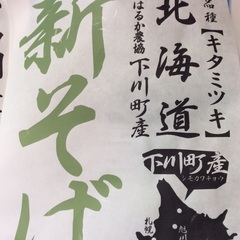 品種【キタミツキ】
北海道
はるか農協
下川町産
新そば
下川町産
シモカワチョウ
旭川
札幌